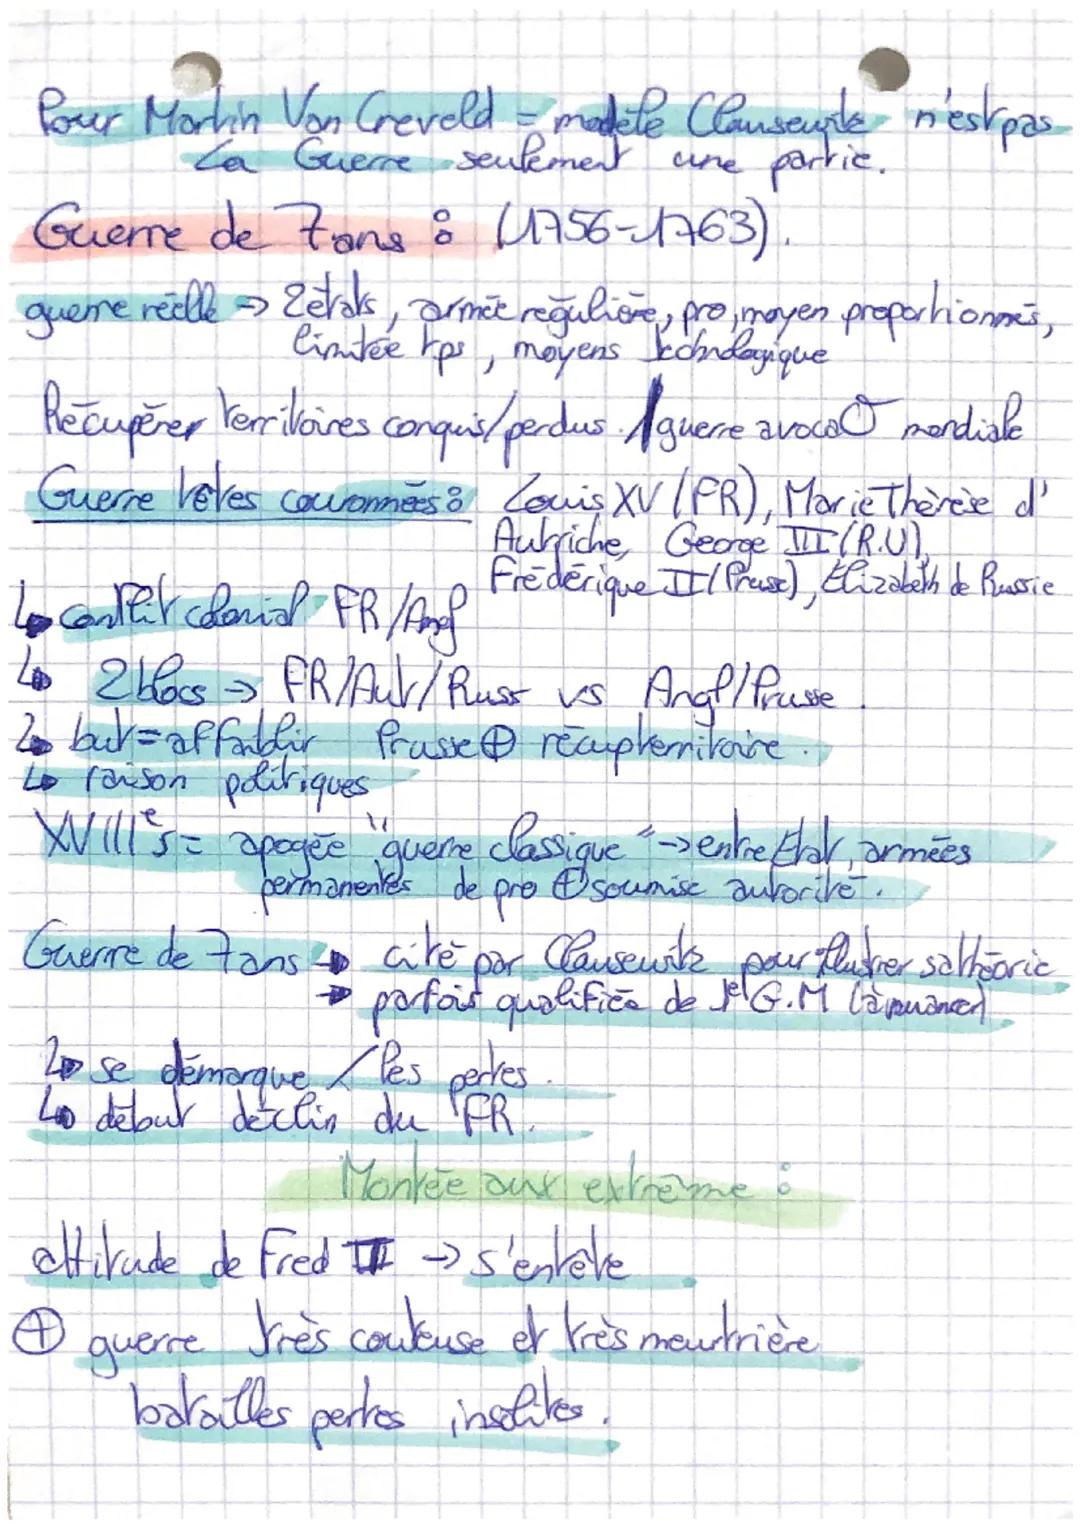 Pour Martin Van Creveld = modèle Clausewitz n'est pas
La Guerre seulement une partie.
Guerre de 7 ans : (1756-1763).
guerre réelle → 2 états, armée régulière, pro, moyen proportionnés,
limitée tps, moyens technologique
Récupérer territoires conquis/perdus. / guerre à vocaO mondiale
Guerre têtes couronnées : Louis XV (FR), Marie Thérèse d'
Autriche, George III (R.U),
Frédérique II (Prusse), Elizabeth de Russie
↳ conflit colonial FR/Angl
↳ 2 blocs → FR/Aut/Russ vs Angl/Prusse.
↳ but = affaiblir Prusse ⊕ récup territoire.
↳ raison politiques
XVIIIe s = apogée "guerre classique" → entre Etat, armées
permanentes de pro ⊕ soumise autorité.
Guerre de 7 ans → cité par Clausewitz pour illustrer sa théorie
→ parfois qualifiée de 1e G.M (à nuancer)
↳ se démarque / les pertes.
↳ début déclin du FR.
Montée aux extrême :
attitude de Fred II → s'entête
⊕ guerre très couteuse et très meurtrière
batailles pertes insolites.